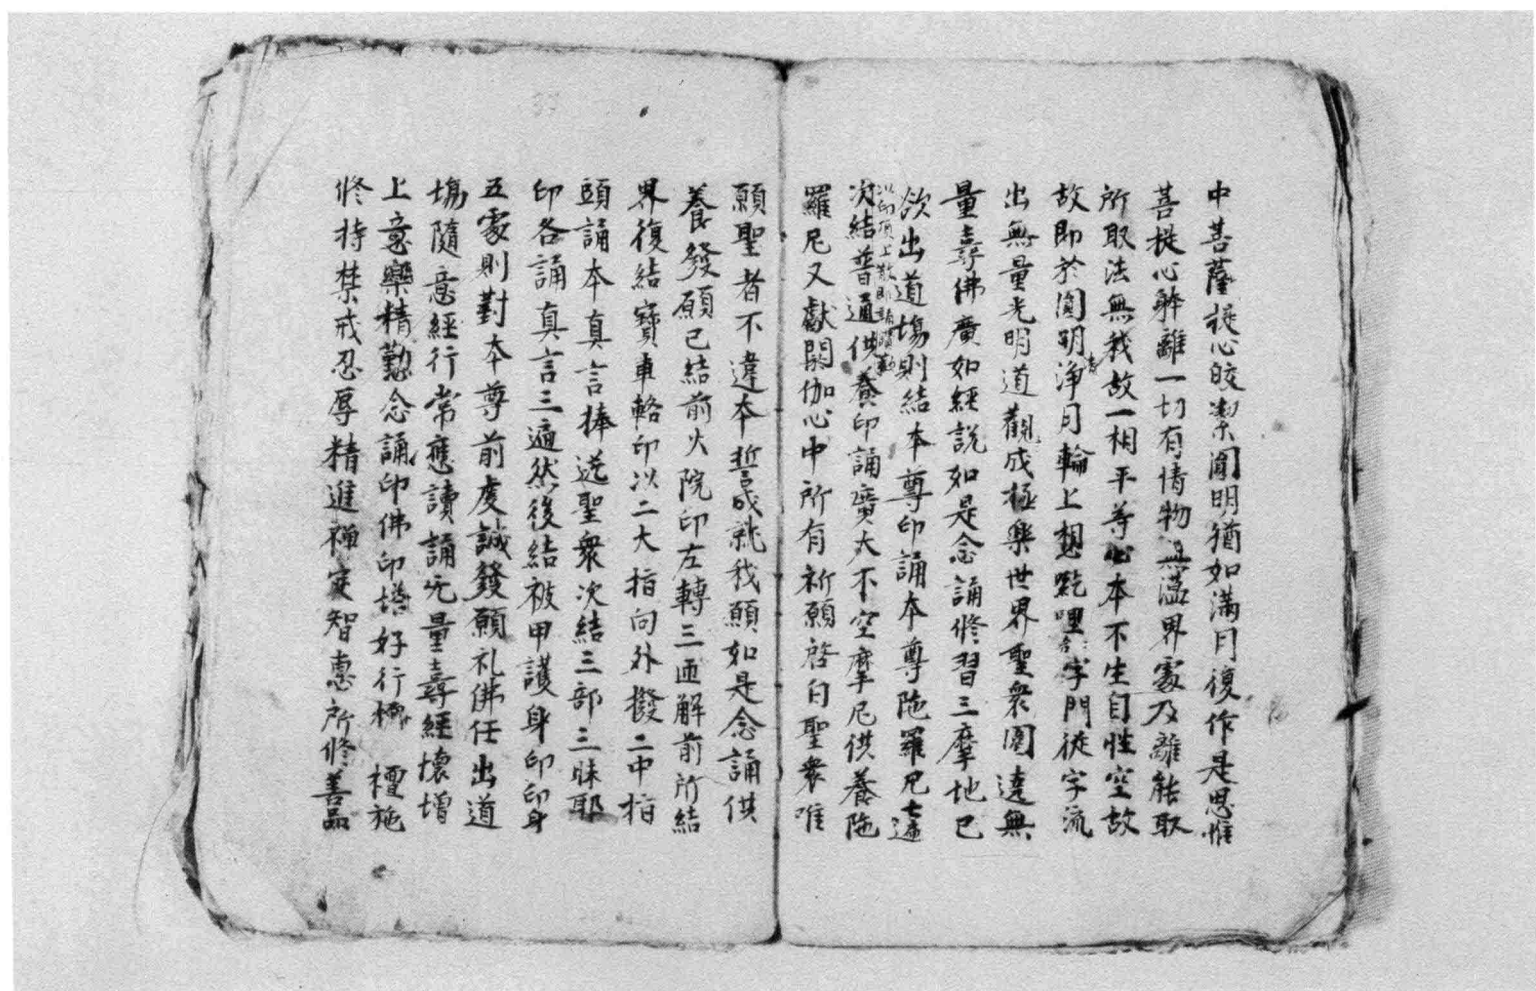 中菩薩提心皎潔圓明猶如滿月復作是思惟
菩提心躰離一切有情物無藴界處及離能取
所取法無我故一相平等心本不生自性空故
故即於圓明淨月輪上想紇哩字門從字流
出無量光明道觀成極樂世界聖衆圍遶無
量壽佛廣如經説如是念誦修習三摩地已
欲出道場則結本尊印誦本尊陁羅尼七遍
以印頂上散即誦讃歎
次結普通供養印誦廣大不空摩尼供養陁
羅尼又獻閼伽心中所有祈願啓白聖衆唯
願聖者不違本誓成就我願如是念誦供
養發願已結前火院印左轉三迊解前所結
界復結寶車輅印以二大指向外撥二中指
頭誦本真言捧送聖衆次結三部三昧耶
印各誦真言三遍然後結被甲護身印印身
五處則對本尊前虔誠發願礼佛任出道
塲隨意經行常應讀誦无量壽經懷增
上意樂精懃念誦印佛印塔好行檀施
修持禁戒忍辱精進禪定智惠所修善品